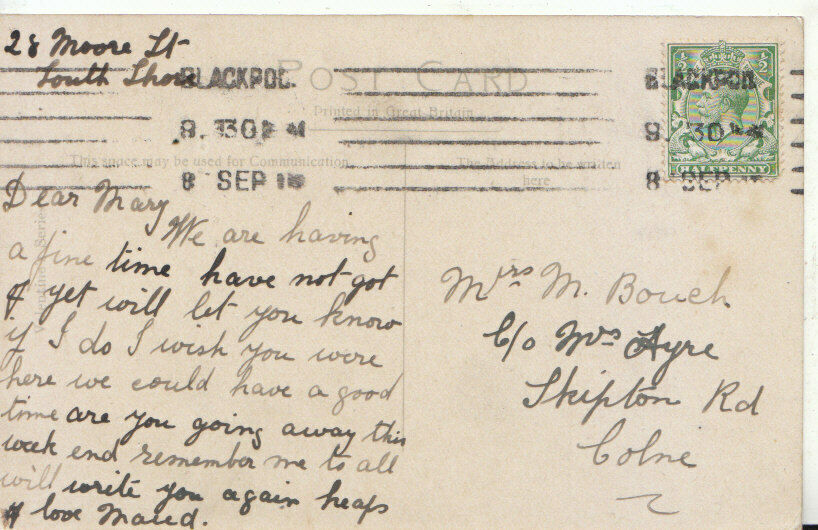 28 Moore St
South Shore
BLACKPOOL
8. 30 PM
8 SEP
BLACKPOOL
8. 30
8 SEP
½ ½
HALFPENNY
POST CARD
Printed in Great Britain
This space may be used for Communication
The Address to be written
here
Series
Dear Mary
We are having
a fine time have not got
yet will let you know
if I do I wish you were
here we could have a good
time are you going away this
week end remember me to all
will write you again heaps
of love Maud.
Mrs M. Bouch
C/o Mrs Ayre
Skipton Rd
Colne